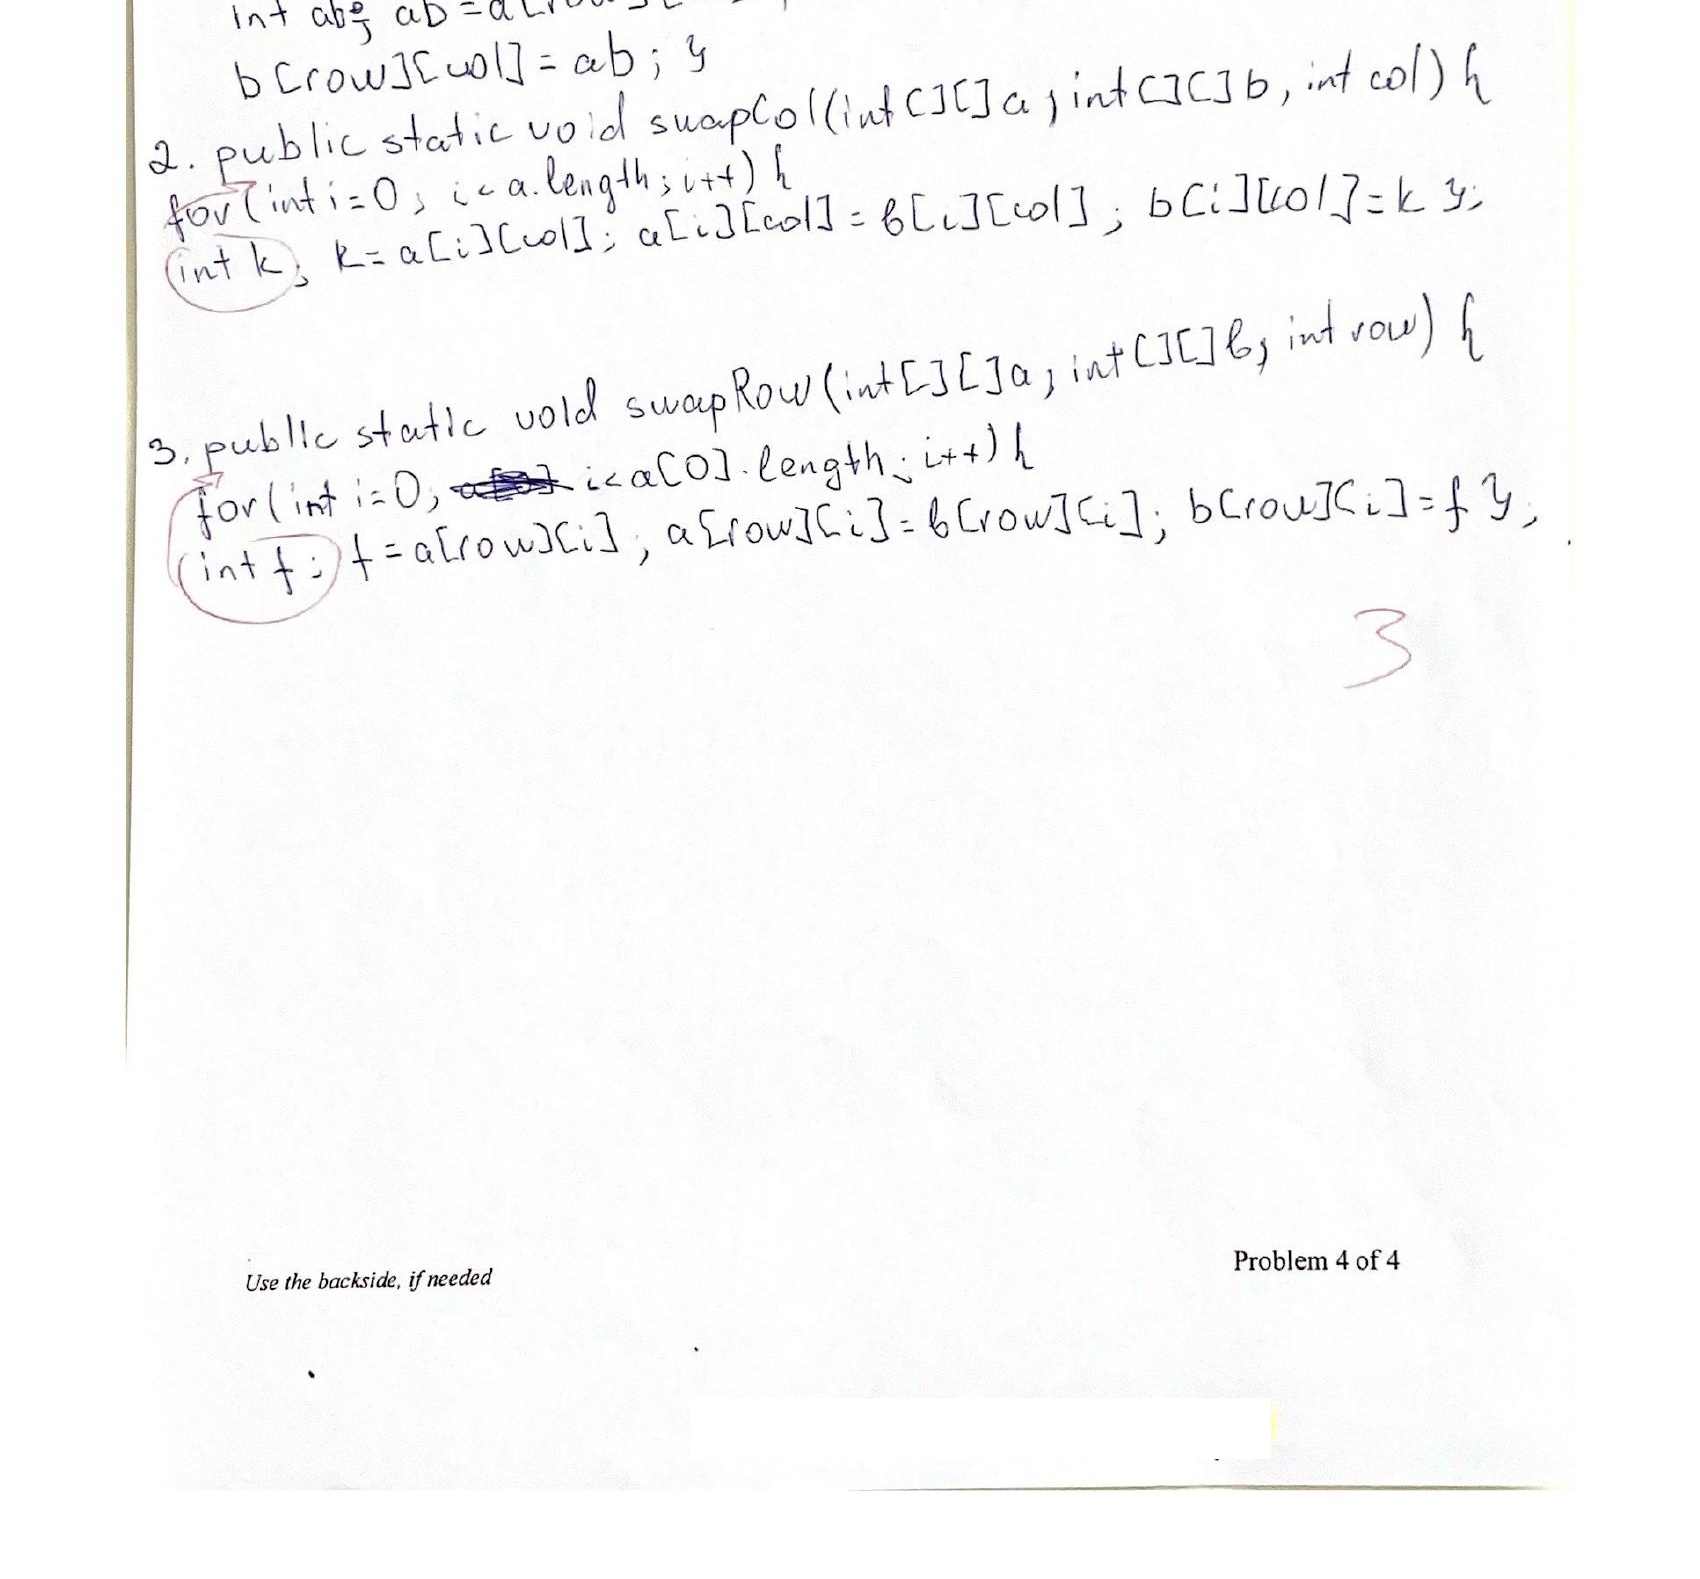 int ab; ab = a[row]
b[row][col] = ab; }
2. public static void swapCol(int[][] a, int[][] b, int col) {
for (int i = 0; i < a.length; i++) {
int k; k = a[i][col]; a[i][col] = b[i][col]; b[i][col] = k };
3. public static void swapRow(int[][] a, int[][] b, int row) {
for (int i = 0; i < a[0].length; i++) {
int f; f = a[row][i]; a[row][i] = b[row][i]; b[row][i] = f };
3
Problem 4 of 4
Use the backside, if needed